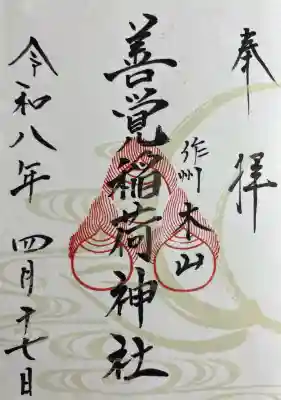 奉拝
作州木山
善覚稲荷神社
令和八年四月十七日